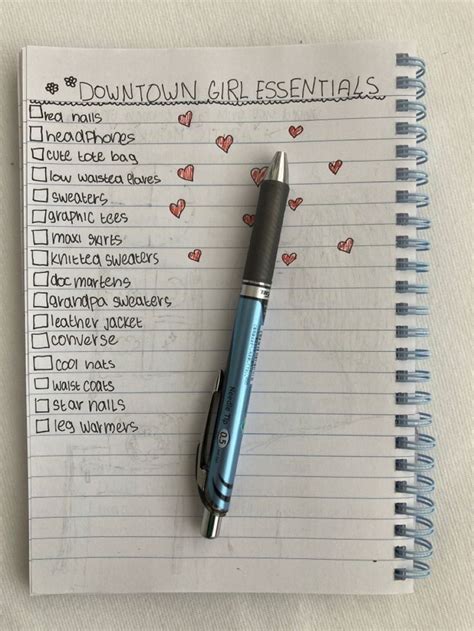 DOWNTOWN GIRL ESSENTIALS
red nails
headphones
cute tote bag
low waisted flares
sweaters
graphic tees
maxi skirts
knitted sweaters
doc martens
grandpa sweaters
leather jacket
converse
cool hats
waist coats
star nails
leg warmers
Needle Tip 0.5